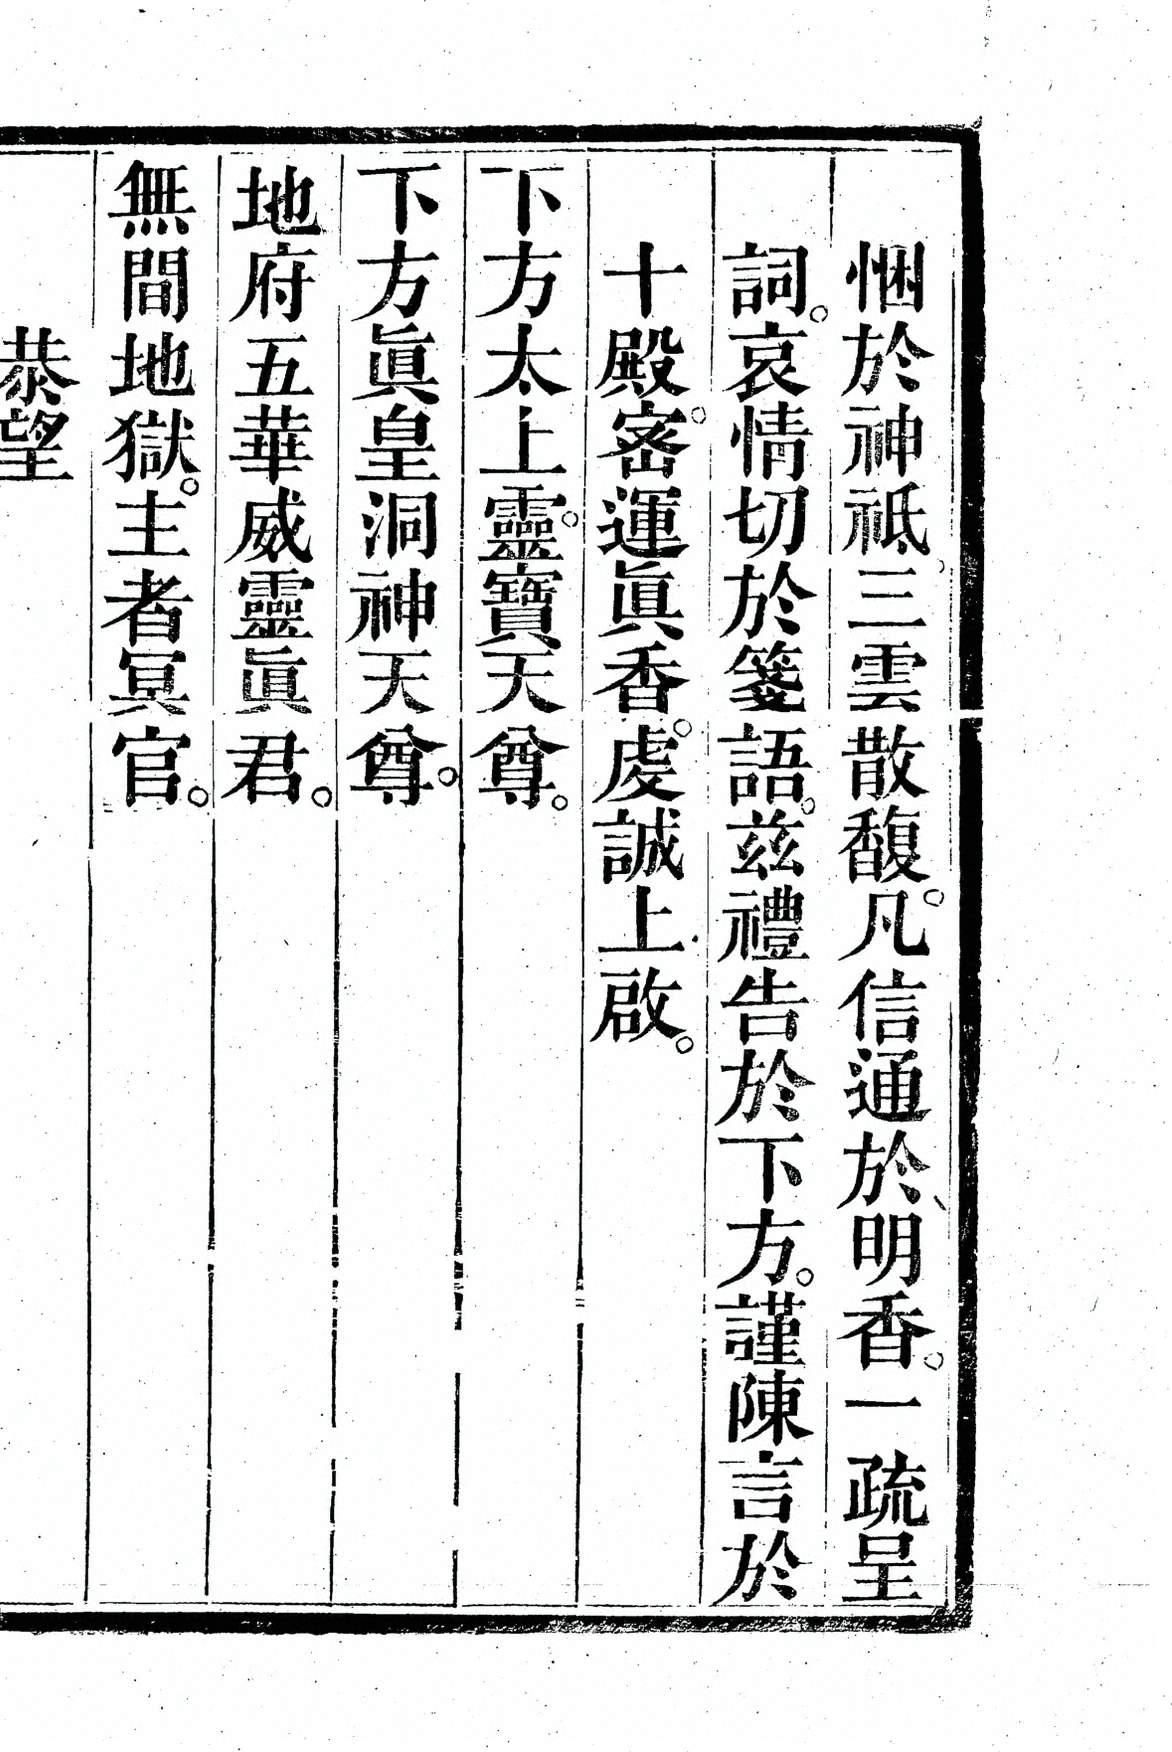 悃於神祗三雲散馥。凡信通於明香。一疏呈
詞。哀情切於箋語。茲禮告於下方。謹陳言於
十殿。密運眞香。虔誠上啟。
下方太上靈。寶天尊。
下方眞皇洞神天尊。
地府五華威靈眞君。
無間地獄。主者冥官。
恭望